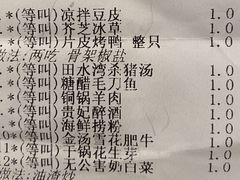 .*(等叫)凉拌豆皮 1.0
.*(等叫)芝芝冰草 1.0
.*(等叫)片皮烤鸭 整只 1.0
做法:两吃 骨架椒盐
.*(等叫)田水湾杀猪汤 1.0
.*(等叫)糖醋毛刀鱼 1.0
.*(等叫)铜锅羊肉 1.0
.*(等叫)贵妃醉酒 1.0
.*(等叫)海鲜捞粉 1.0
0*(等叫)金汤雪花肥牛 1.0
1*(等叫)干锅花生芽 1.0
2*(等叫)天公害奶白菜 1.0
做法:油渣炒